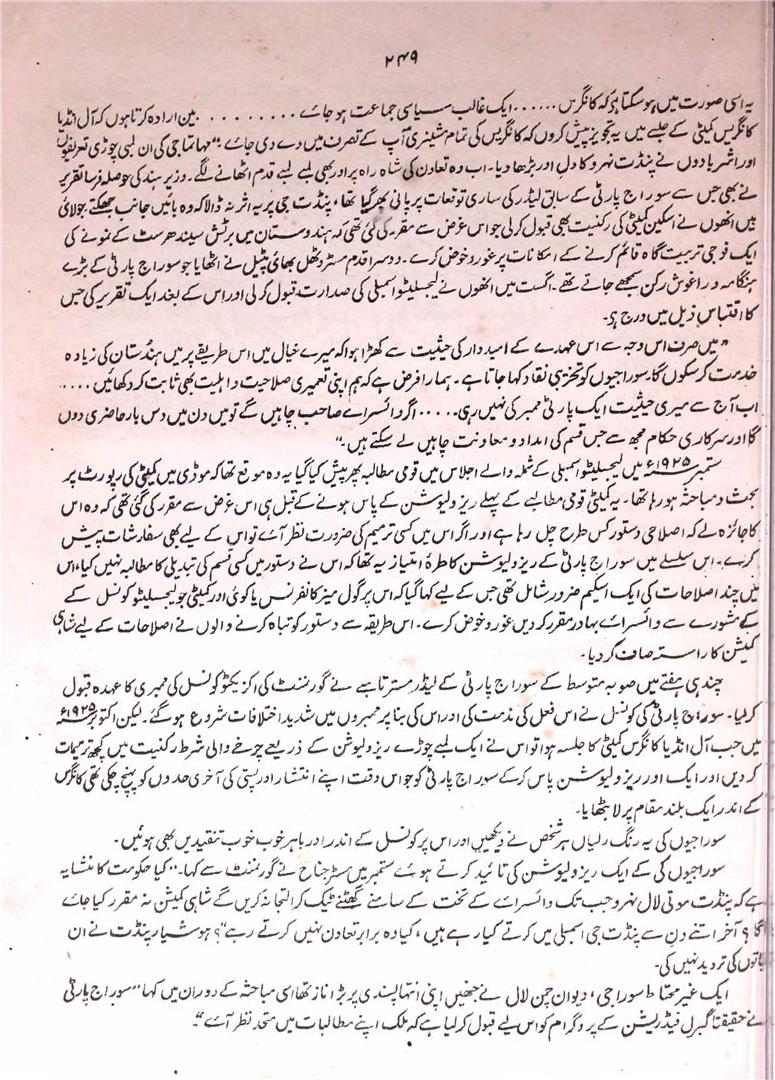 ۲۴۹
یہ اسی صورت میں ہوسکتا ہی کہ کانگرس ...... ایک غالب سیاسی جماعت ہوجائے ......... میں ارادہ کرتا ہوں کہ آل انڈیا
کانگریس کمیٹی کے جلسے میں یہ تجویز پیش کروں کہ کانگریس کی تمام مشینری آپ کے تصرف میں دے دی جائے“ مہاتما جی کی ان لمبی چوڑی تعریفوں
اور اشیربادوں نے پنڈت نہرو کا دل اور بڑھا دیا۔ اب وہ تعاون کی شاہ راہ پر اور بھی لمبے لمبے قدم اٹھانے لگے۔ وزیر ہند کی حوصلہ فرسا تقریر
نے بھی جس سے سوراج پارٹی کے سابق لیڈر کی ساری توقعات پر پانی پھر گیا تھا، پنڈت جی پر یہ اثر نہ ڈالا کہ وہ بائیں جانب جھکتے جولائی
میں انھوں نے اسکین کمیٹی کی رکنیت بھی قبول کرلی جو اس غرض سے مقرر کی گئی تھی کہ ہندوستان میں برٹش سینڈھرسٹ کے نمونے کی
ایک فوجی تربیت گاہ قائم کرنے کے امکانات پر غور و خوض کرے۔ دوسرا قدم مسٹر وٹھل بھائی پٹیل نے اٹھایا جو سوراج پارٹی کے بڑے
ہنگامہ در آغوش رکن سمجھے جاتے تھے۔ اگست میں انھوں نے لیجسلیٹو اسمبلی کی صدارت قبول کرلی اور اس کے بعد ایک تقریر کی جس
کا اقتباس ذیل میں درج ہی۔
”میں صرف اس وجہ سے اس عہدے کے امیدوار کی حیثیت سے کھڑا ہوا کہ میرے خیال میں اس طریقے پر میں ہندستان کی زیادہ
خدمت کرسکوں گا۔ سوراجیوں کو تخریبی نقاد کہا جاتا ہے۔ ہمارا فرض ہے کہ ہم اپنی تعمیری صلاحیت و اہلیت بھی ثابت کر دکھائیں ....
اب آج سے میری حیثیت ایک پارٹی ممبر کی نہیں رہی ..... اگر وائسرائے صاحب چاہیں گے تو میں دن میں دس بار حاضری دوں
گا اور سرکاری حکام مجھ سے جس قسم کی امداد و معاونت چاہیں لے سکتے ہیں۔“
ستمبر ۱۹۲۵ء میں لیجسلیٹو اسمبلی کے شملہ والے اجلاس میں قومی مطالبہ پھر پیش کیا گیا یہ وہ موقع تھا کہ موڈی مین کمیٹی کی رپورٹ پر
بحث و مباحثہ ہورہا تھا۔ یہ کمیٹی قومی مطالبے کے پہلے ریزولیوشن کے پاس ہونے کے قبل ہی اس غرض سے مقرر کی گئی تھی کہ وہ اس
کا جائزہ لے کہ اصلاحی دستور کس طرح چل رہا ہے اور اگر اس میں کسی ترمیم کی ضرورت نظر آئے تو اس کے لیے بھی سفارشات پیش
کرے۔ اس سلسلے میں سوراج پارٹی کے ریزولیوشن کا طرۂ امتیاز یہ تھا کہ اس نے دستور میں کسی قسم کی تبدیلی کا مطالبہ نہیں کیا، اس
میں چند اصلاحات کی ایک اسکیم ضرور شامل تھی جس کے لیے کہا گیا کہ اس پر گول میز کانفرنس یا کوئی اور کمیٹی جو لیجسلیٹو کونسل کے
کے مشورے سے وائسرائے بہادر مقرر کردیں غور و خوض کرے۔ اس طریقہ سے دستور کو تباہ کرنے والوں نے اصلاحات کے لیے شاہی
کمیشن کا راستہ صاف کردیا۔
چند ہی ہفتے میں صوبہ متوسط کے سوراج پارٹی کے لیڈر مسٹر تامبے نے گورنمنٹ کی اکزیکٹو کونسل کی ممبری کا عہدہ قبول
کرلیا۔ سوراج پارٹی کی کونسل نے اس فعل کی مذمت کی اور اس کی بنا پر ممبروں میں شدید اختلافات شروع ہوگئے۔ لیکن اکتوبر ۱۹۲۵ء
میں جب آل انڈیا کانگرس کمیٹی کا جلسہ ہوا تو اس نے ایک لمبے چوڑے ریزولیوشن کے ذریعے چرخے والی شرط رکنیت میں کچھ ترمیمات
کردیں اور ایک اور ریزولیوشن پاس کرکے سوراج پارٹی کو جو اس وقت اپنے انتشار اور پستی کی آخری حدوں کو پہنچ چکی تھی کانگرس
کے اندر ایک بلند مقام پر لا بٹھایا۔
سوراجیوں کی یہ رنگ رلیاں ہر شخص نے دیکھیں اور اس پر کونسل کے اندر اور باہر خوب خوب تنقیدیں بھی ہوئیں۔
سوراجیوں کی کے ایک ریزولیوشن کی تائید کرتے ہوئے ستمبر میں مسٹر جناح نے گورنمنٹ سے کہا۔ ”کیا حکومت کا منشا یہ
ہے کہ پنڈت موتی لال نہرو جب تک وائسرائے کے تخت کے سامنے گھٹنے ٹیک کر التجا نہ کریں گے شاہی کمیشن نہ مقرر کیا جائے
گا؟ آخر اتنے دن سے پنڈت جی اسمبلی میں کرتے کیا رہے ہیں، کیا وہ برابر تعاون نہیں کرتے رہے“؟ ہوشیار پنڈت نے ان
باتوں کی تردید نہیں کی۔
ایک غیر محتاط سوراجی، دیوان چمن لال نے جنھیں اپنی انتہا پسندی پر بڑا ناز تھا اسی مباحثہ کے دوران میں کہا ”سوراج پارٹی
نے حقیقتاً لبرل فیڈریشن کے پروگرام کو اس لیے قبول کرلیا ہے کہ ملک اپنے مطالبات میں متحد نظر آئے“۔